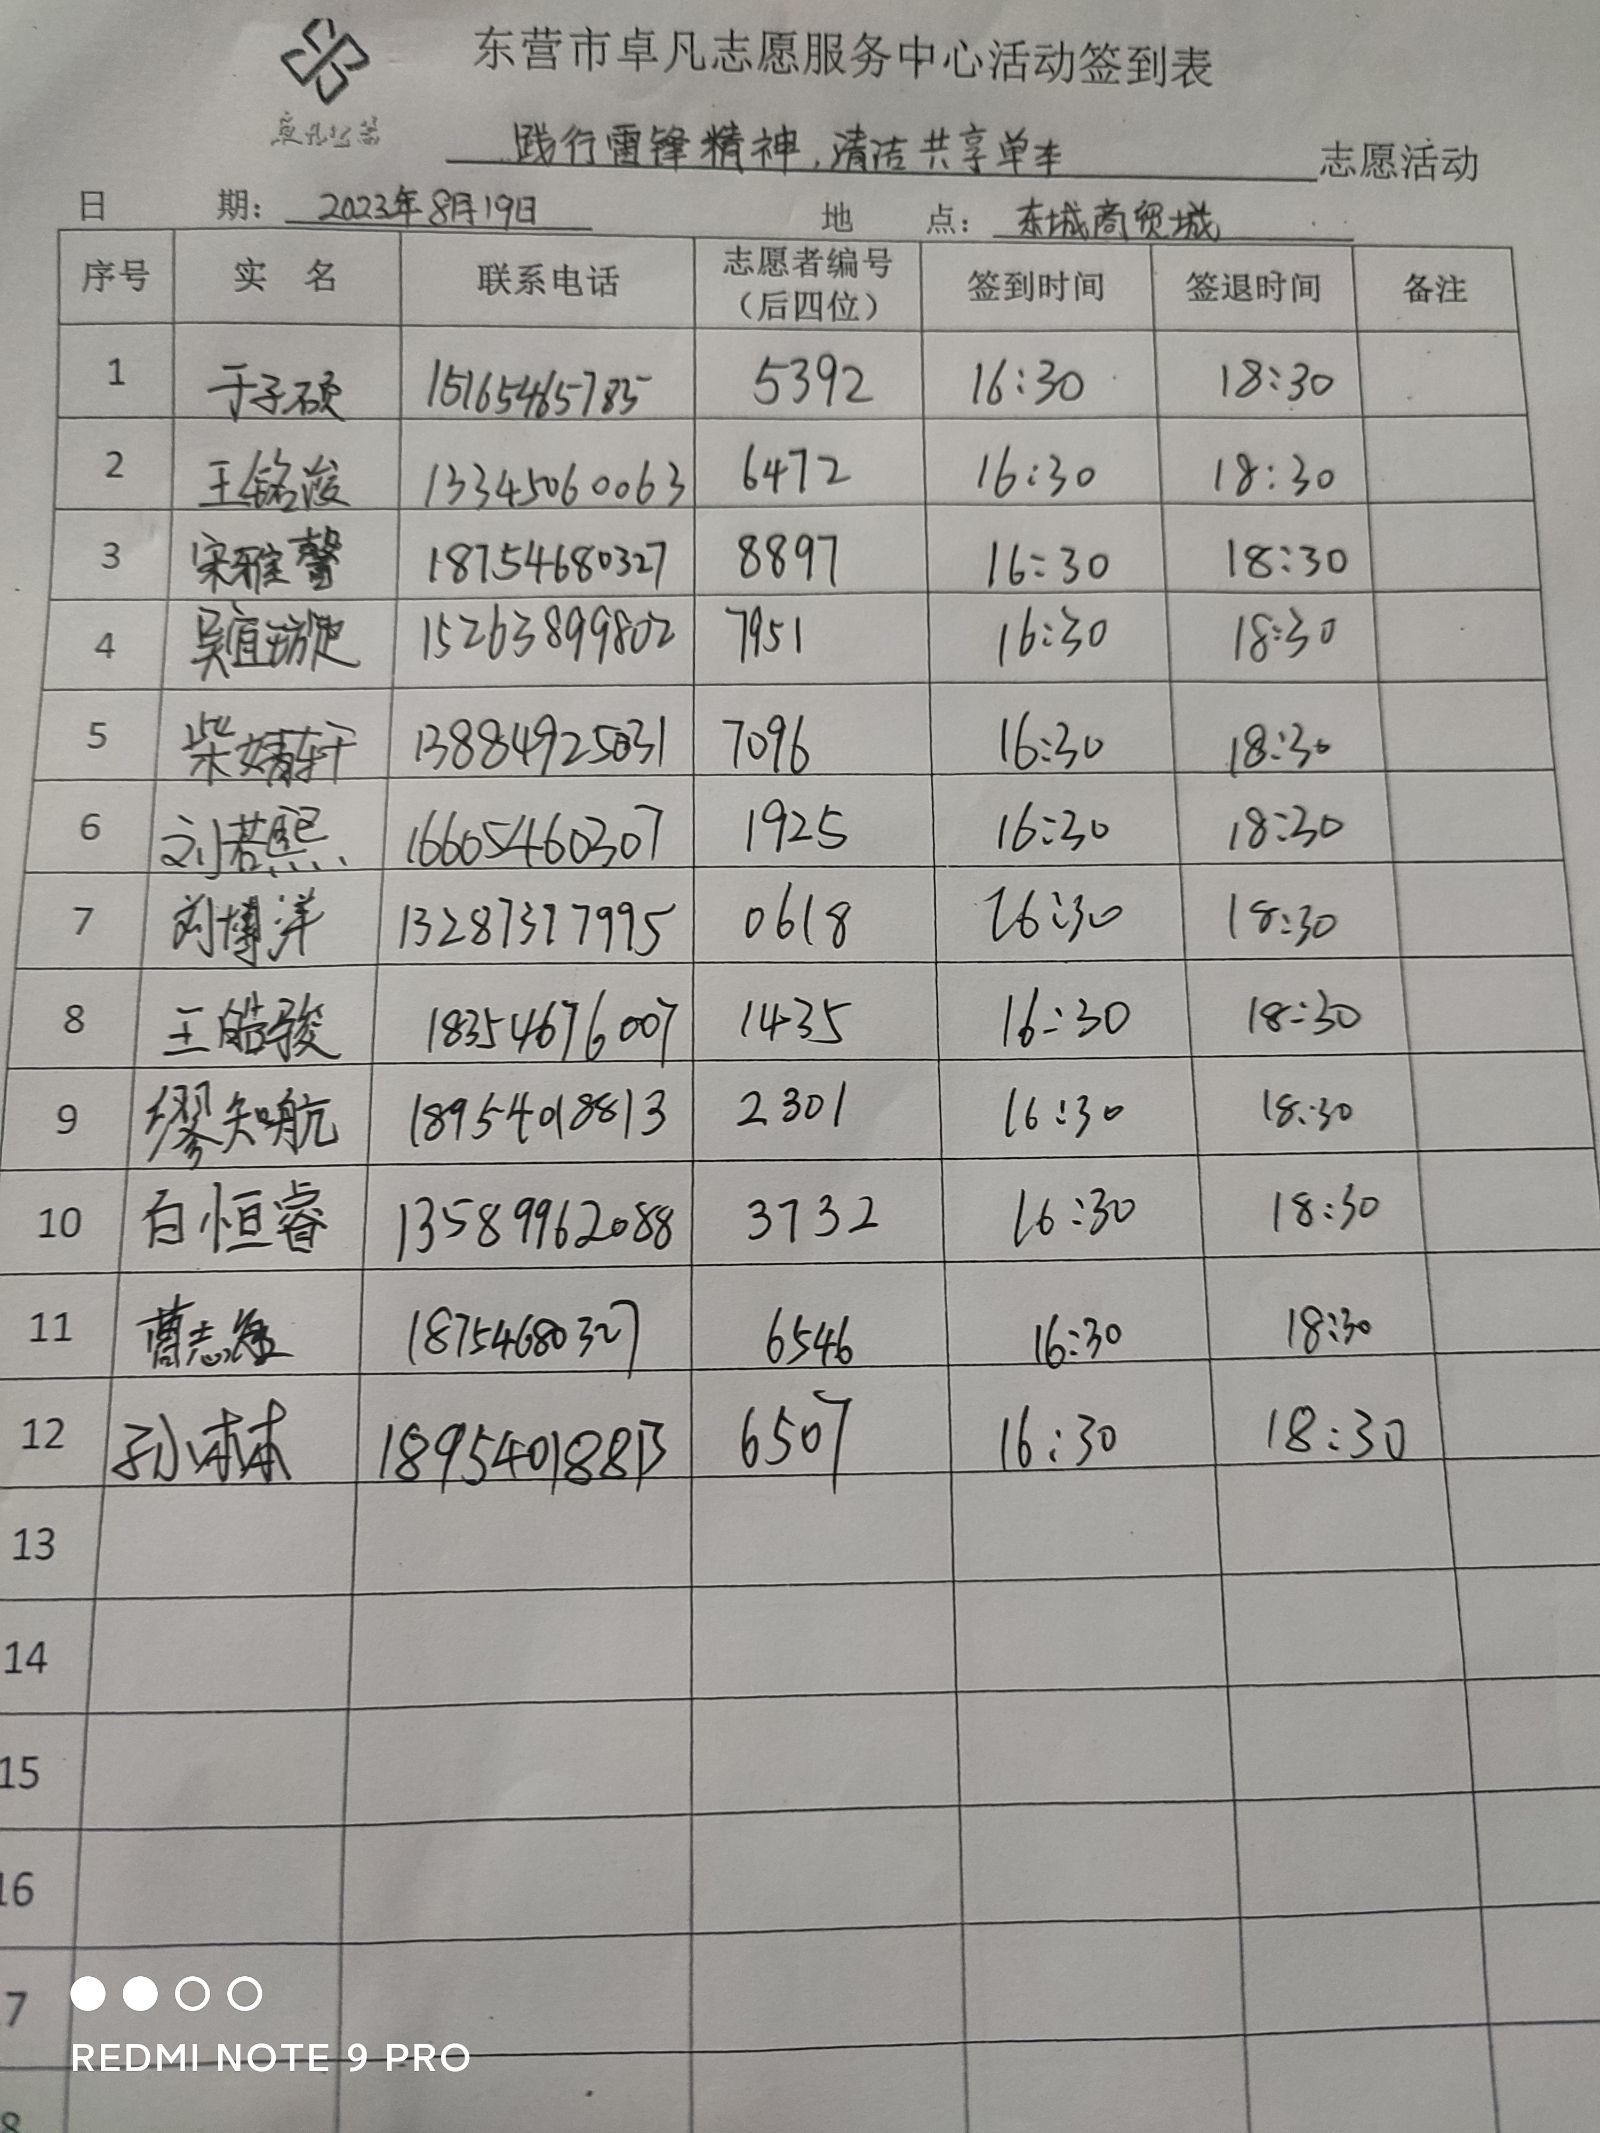 东营市卓凡志愿服务中心活动签到表
卓凡公益
践行雷锋精神,清洁共享单车 志愿活动
日 期: 2023年8月19日 地 点: 东城商贸城
序号 实 名 联系电话 志愿者编号(后四位) 签到时间 签退时间 备注
1 于子硕 15165465785 5392 16:30 18:30
2 王铭浚 13345060063 6472 16:30 18:30
3 宋雅馨 18754680327 8897 16:30 18:30
4 吴宜 15263899802 7951 16:30 18:30
5 柴婧轩 13884925031 7096 16:30 18:30
6 刘若熙 16605460307 1925 16:30 18:30
7 刘博洋 13287377995 0618 16:30 18:30
8 王皓骏 18354676007 1435 16:30 18:30
9 缪知航 18954018813 2301 16:30 18:30
10 白恒睿 13589962088 3732 16:30 18:30
11 曹志 18754680327 6546 16:30 18:30
12 孙沐林 18954018813 6507 16:30 18:30
13
14
15
16
7
8
REDMI NOTE 9 PRO